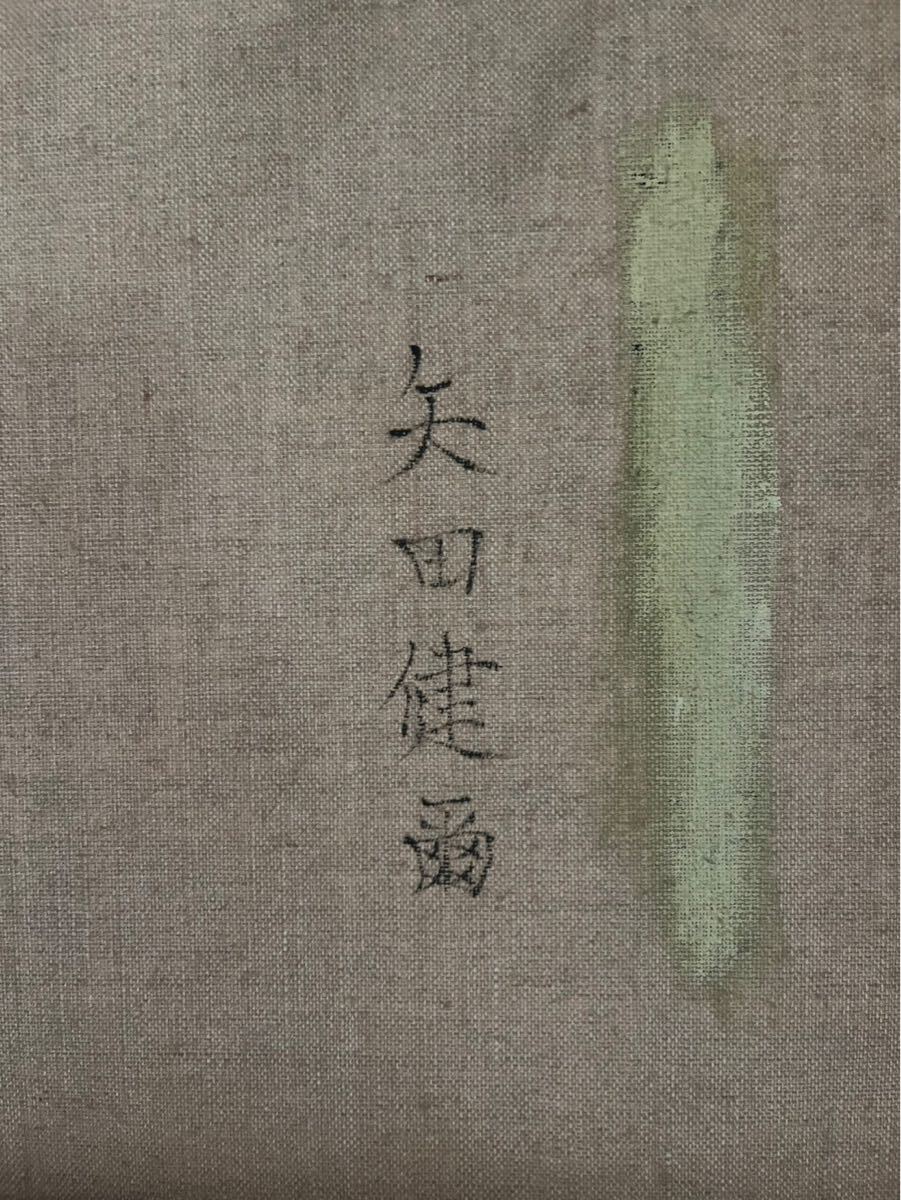 矢田健爾